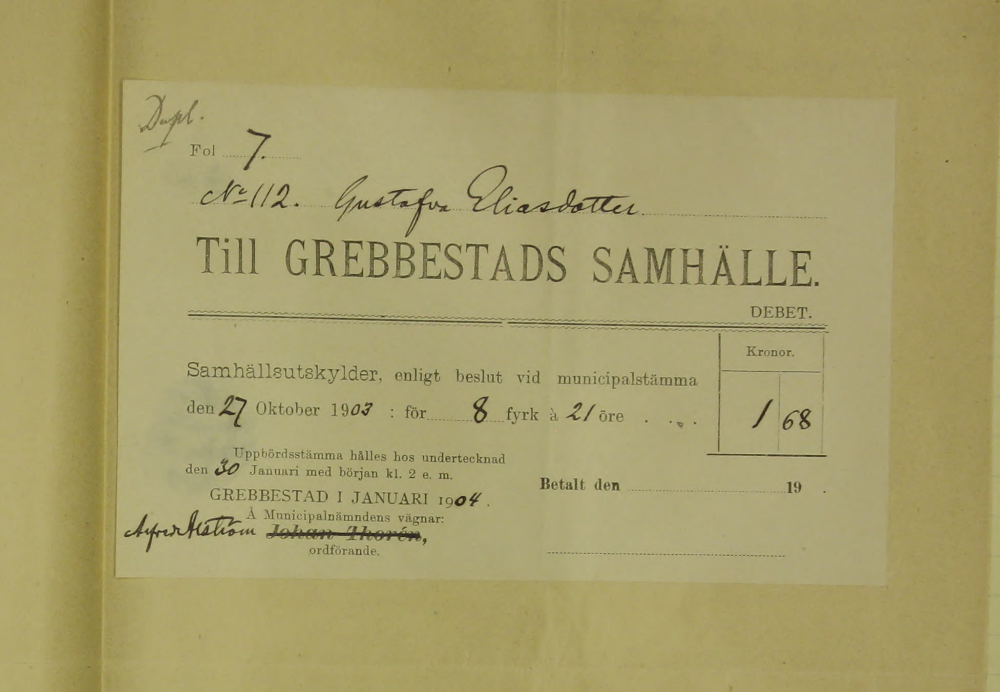 Dupl.
Fol 7.
No 112. Gustafva Eliasdotter
Till GREBBESTADS SAMHÄLLE.
DEBET.
Kronor.
Samhällsutskylder, enligt beslut vid municipalstämma
den 27 Oktober 1903 : för 8 fyrk à 21 öre . . . 1 68
Uppbördsstämma hålles hos undertecknad
den 30 Januari med början kl. 2 e. m.
Betalt den 19 .
GREBBESTAD I JANUARI 1904 .
Å Municipalnämndens vägnar:
Alfred Alström Johan Thorén,
ordförande.